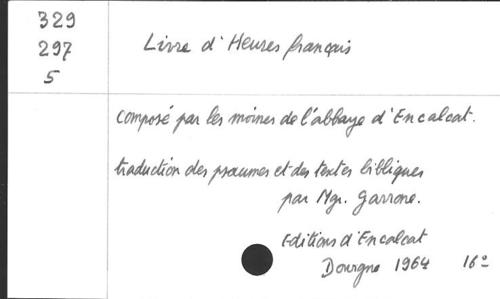 329
297
5
Livre d'Heures français
composé par les moines de l'abbaye d'Encalcat.
traduction des psaumes et des textes bibliques
par Mgr. Garrone.
Editions d'Encalcat
Dourgne 1964 16°